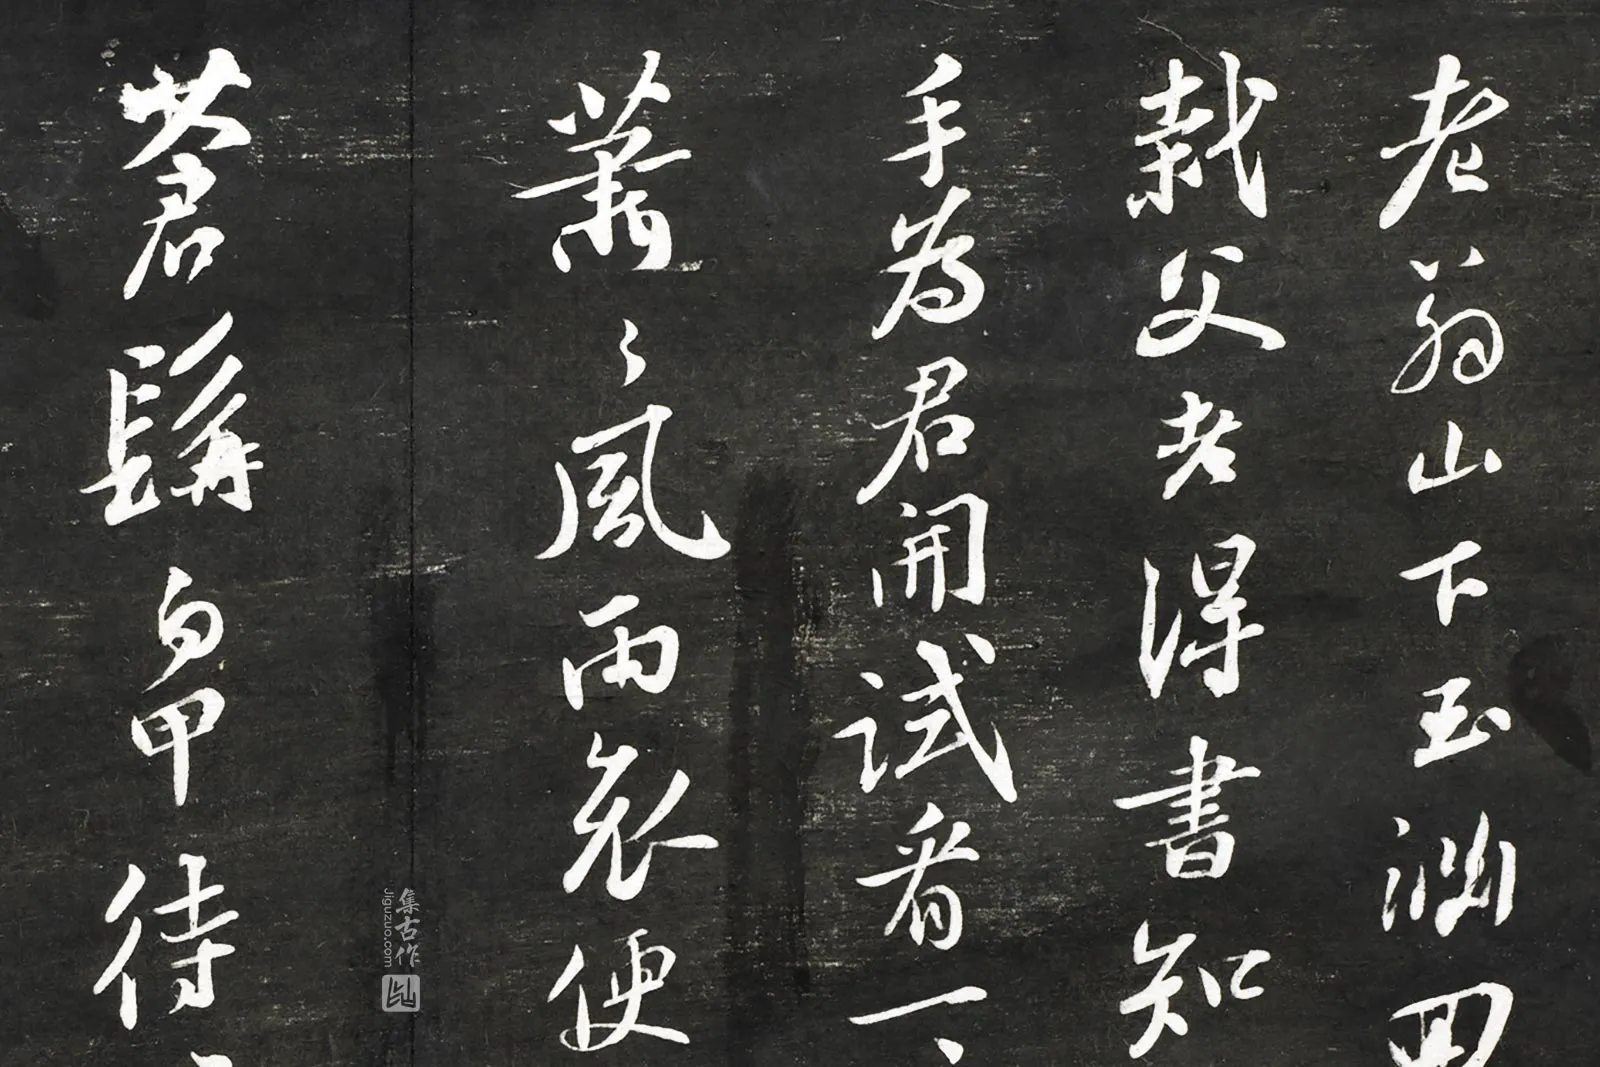 老翁山下玉淵回
栽父老得書知
手為君開試看一
蕭〻風雨哀便
蒼髯白甲待
集古作
jiguzuo.com